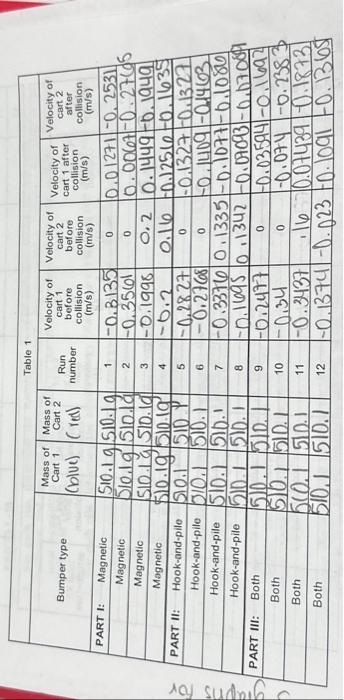 Table 1
Bumper type | Mass of Cart 1 (blue) | Mass of Cart 2 (red) | Run number | Velocity of cart 1 before collision (m/s) | Velocity of cart 2 before collision (m/s) | Velocity of cart 1 after collision (m/s) | Velocity of cart 2 after collision (m/s)
PART I: Magnetic | 510.1g | 510.1g | 1 | -0.3135 | 0 | 0.01271 | -0.2531
Magnetic | 510.1g | 510.1g | 2 | -0.3561 | 0 | 0.0067 | -0.2766
Magnetic | 510.1g | 510.1g | 3 | -0.1998 | 0.2 | 0.1499 | -0.1949
Magnetic | 510.1g | 510.1g | 4 | -0.2 | 0.16 | 0.1256 | -0.1635
PART II: Hook-and-pile | 510.1 | 510.1 | 5 | -0.2827 | 0 | -0.1327 | -0.1327
Hook-and-pile | 510.1 | 510.1 | 6 | -0.2768 | 0 | -0.1409 | -0.1403
Hook-and-pile | 510.1 | 510.1 | 7 | -0.3376 | 0.1335 | -0.1077 | -0.1086
Hook-and-pile | 510.1 | 510.1 | 8 | -0.1695 | 0.1342 | -0.01093 | -0.017089
PART III: Both | 510.1 | 510.1 | 9 | -0.2477 | 0 | -0.03594 | -0.1692
Both | 510.1 | 510.1 | 10 | -0.34 | 0 | -0.074 | -0.2383
Both | 510.1 | 510.1 | 11 | -0.3437 | .16 | 0.07439 | -0.1873
Both | 510.1 | 510.1 | 12 | -0.1374 | -0.023 | -0.1091 | -0.1365
graphs for